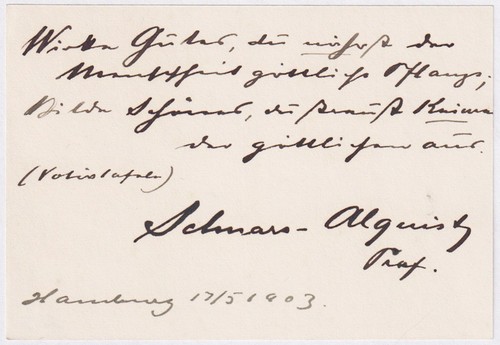 Wirke Gutes, du nährst der
Menschheit göttliche Pflanze;
Bilde Schönes, du streust Keime
der göttlichen aus.
(Votivtafeln)
Schnars-Alquist
Prof.
Hamburg 17/5 1903.